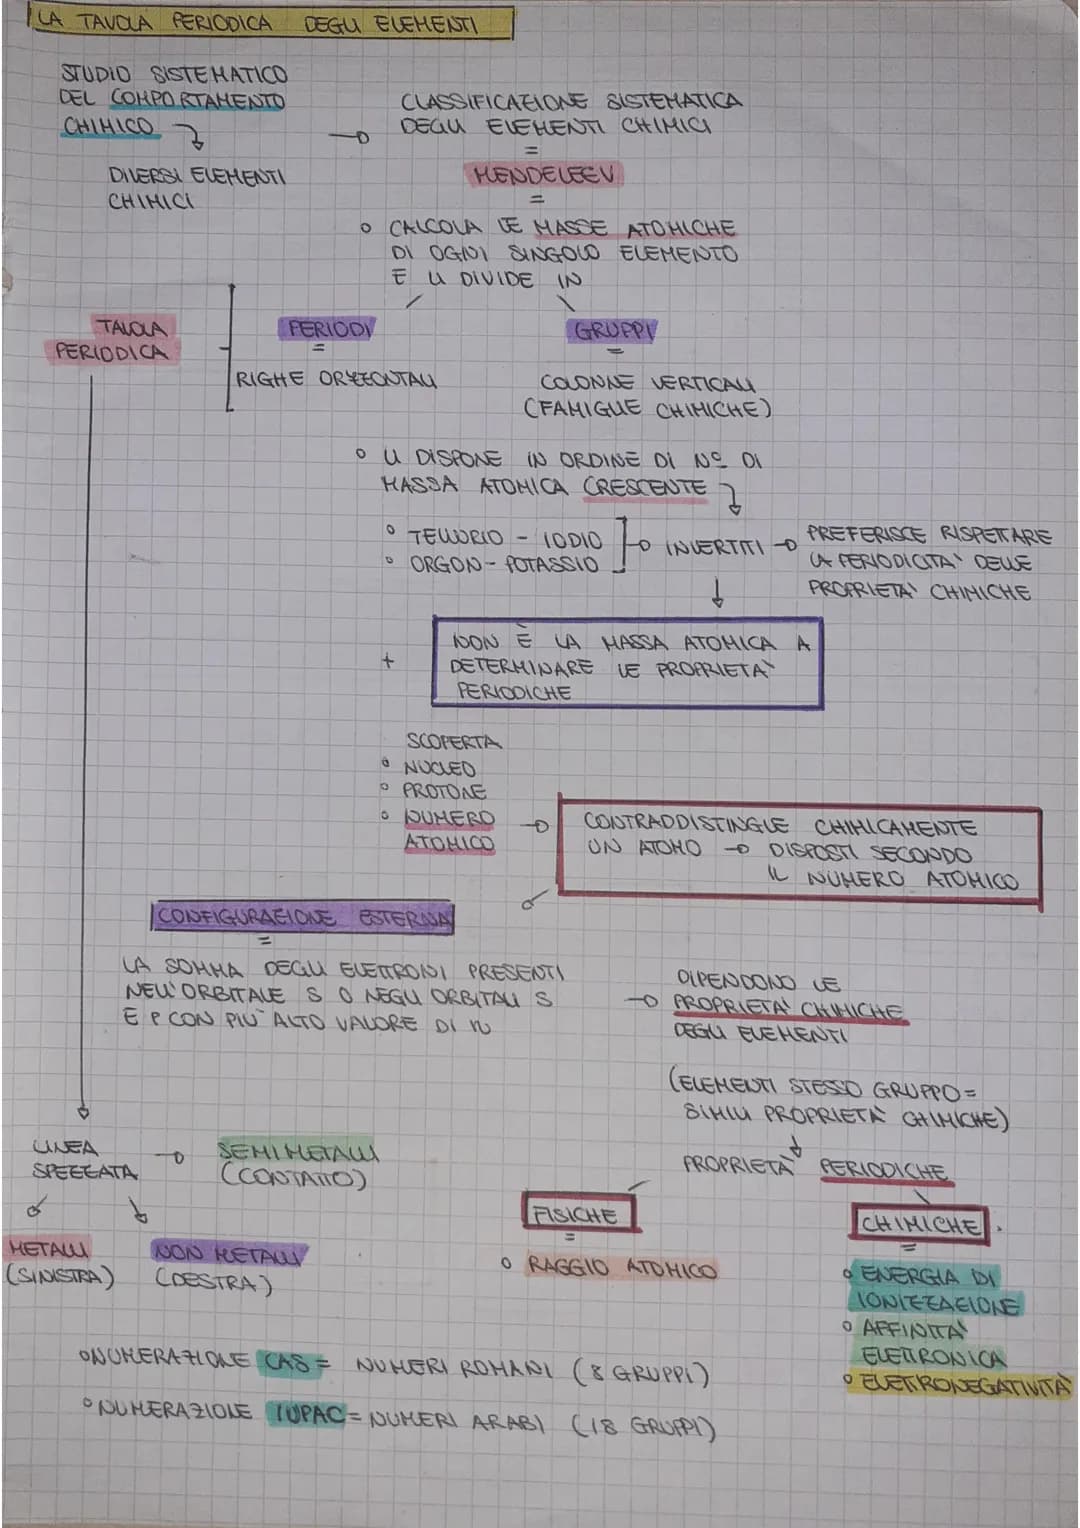 LA TAVOLA PERIODICA DEGLI ELEMENTI
STUDIO SISTEMATICO
DEL COMPORTAMENTO
CHIMICO
DIVERSI ELEMENTI
CHIMICI
CLASSIFICAZIONE SISTEMATICA
DEGLI ELEMENTI CHIMICI
=
MENDELEEV
=
° CALCOLA LE MASSE ATOMICHE
DI OGNI SINGOLO ELEMENTO
E LI DIVIDE IN
TAVOLA
PERIODICA
PERIODI
=
RIGHE ORIZZONTALI
GRUPPI
=
COLONNE VERTICALI
(FAMIGLIE CHIMICHE)
° LI DISPONE IN ORDINE DI N° DI
MASSA ATOMICA CRESCENTE
° TELLURIO - IODIO
° ORGON - POTASSIO
INVERTITI
PREFERISCE RISPETTARE
LA PERIODICITA' DELLE
PROPRIETA' CHIMICHE
+
NON È LA MASSA ATOMICA A
DETERMINARE LE PROPRIETA'
PERIODICHE
SCOPERTA
° NUCLEO
° PROTONE
° NUMERO
ATOMICO
CONTRADDISTINGUE CHIMICAMENTE
UN ATOMO → DISPOSTI SECONDO
IL NUMERO ATOMICO
CONFIGURAZIONE ESTERNA
=
LA SOMMA DEGLI ELETTRONI PRESENTI
NELL'ORBITALE S O NEGLI ORBITALI S
E P CON PIU' ALTO VALORE DI n
DIPENDONO LE
PROPRIETA' CHIMICHE
DEGLI ELEMENTI
(ELEMENTI STESSO GRUPPO =
SIMILI PROPRIETA' CHIMICHE)
PROPRIETA' PERIODICHE
LINEA
SPEZZATA
SEMIMETALLI
(CONTATTO)
METALLI
(SINISTRA)
NON METALLI
(DESTRA)
FISICHE
=
° RAGGIO ATOMICO
CHIMICHE
=
° ENERGIA DI
IONIZZAZIONE
° AFFINITA'
ELETTRONICA
° ELETTRONEGATIVITA'
° NUMERAZIONE CAS = NUMERI ROMANI (8 GRUPPI)
° NUMERAZIOLE IUPAC = NUMERI ARABI (18 GRUPPI)